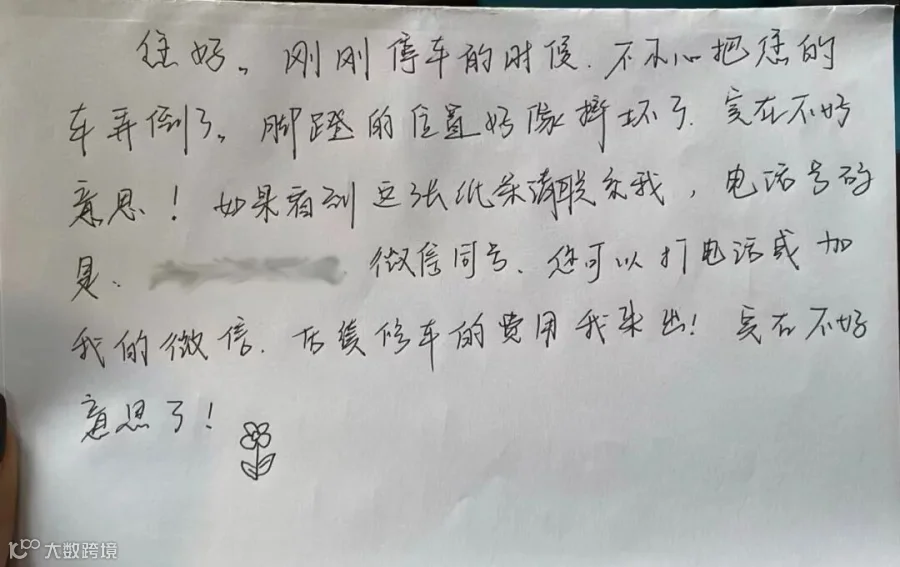 您好。刚刚停车的时候.不小心把您的
车弄倒了。脚蹬的位置好像摔坏了.实在不好
意思！如果看到这张纸条请联系我，电话号码
是. 微信同号、您可以打电话或加
我的微信.后续修车的费用我来出！实在不好
意思了！
大数跨境